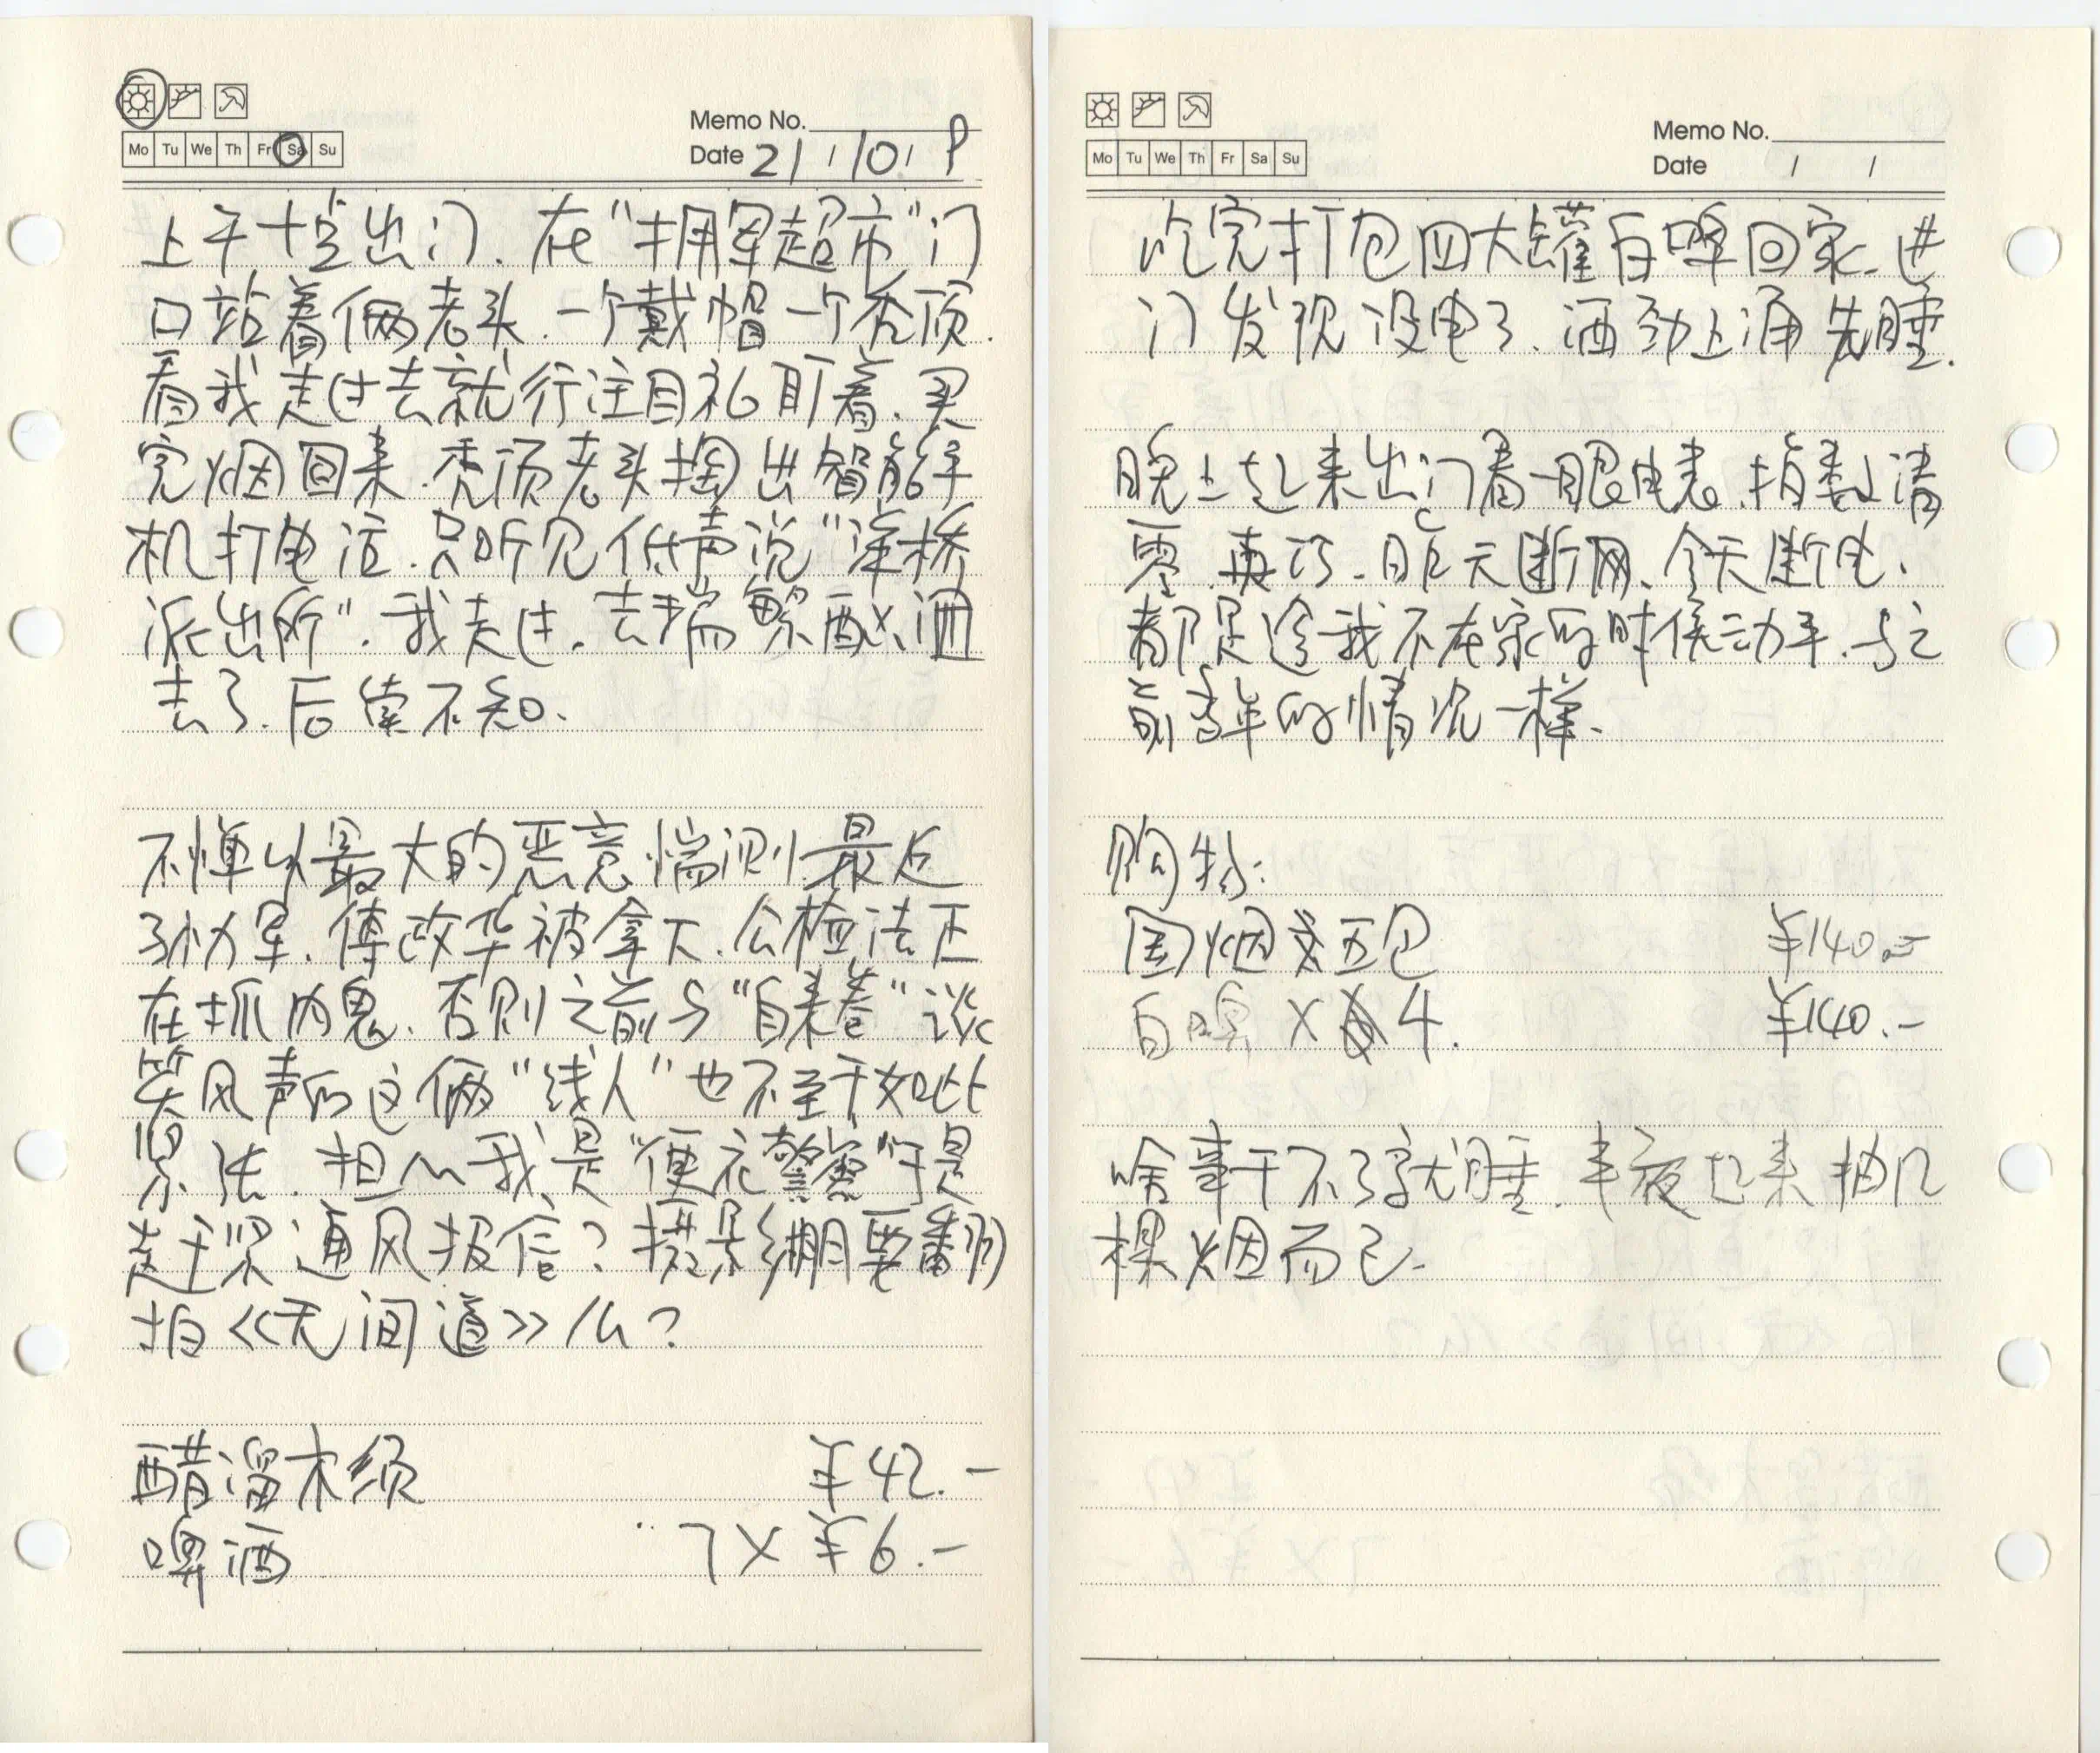 Mo Tu We Th Fr Sa Su
Memo No.
Date 21/10/9
上午十点出门.在“拥军超市”门
口站着俩老头.一个戴帽一个秃顶.
看我走过去就行注目礼盯着.买
完烟回来.秃顶老头掏出智能手
机打电话.只听见低声说“洋桥
派出所”.我走过.去揣
去了.后续不知.
不惮以最大的恶意惴测.最近
孙力军.傅政华被拿下.公检法正
在抓内鬼.否则之前与“自来卷”谈
笑风声的这俩“线人”也不至于如此
紧张.担心我是“便衣警察”于是
赶紧通风报信?摄影棚要翻
拍《无间道》么?
醋溜木须 ¥42.-
啤酒 7X¥6.-
Mo Tu We Th Fr Sa Su
Memo No.
Date / /
吃完打包四大罐白啤回家.进
门发现没电了.酒劲上涌先睡.
晚上起来出门看一眼电表.指数清
零.真巧.昨天断网、今天断电、
都是趁我不在家的时候动手.与之
前多年的情况一样.
购物:
烟 五包 ¥140.-
白啤 X 4. ¥140.-
啥事干不了就睡.半夜起来抽几
棵烟而已.